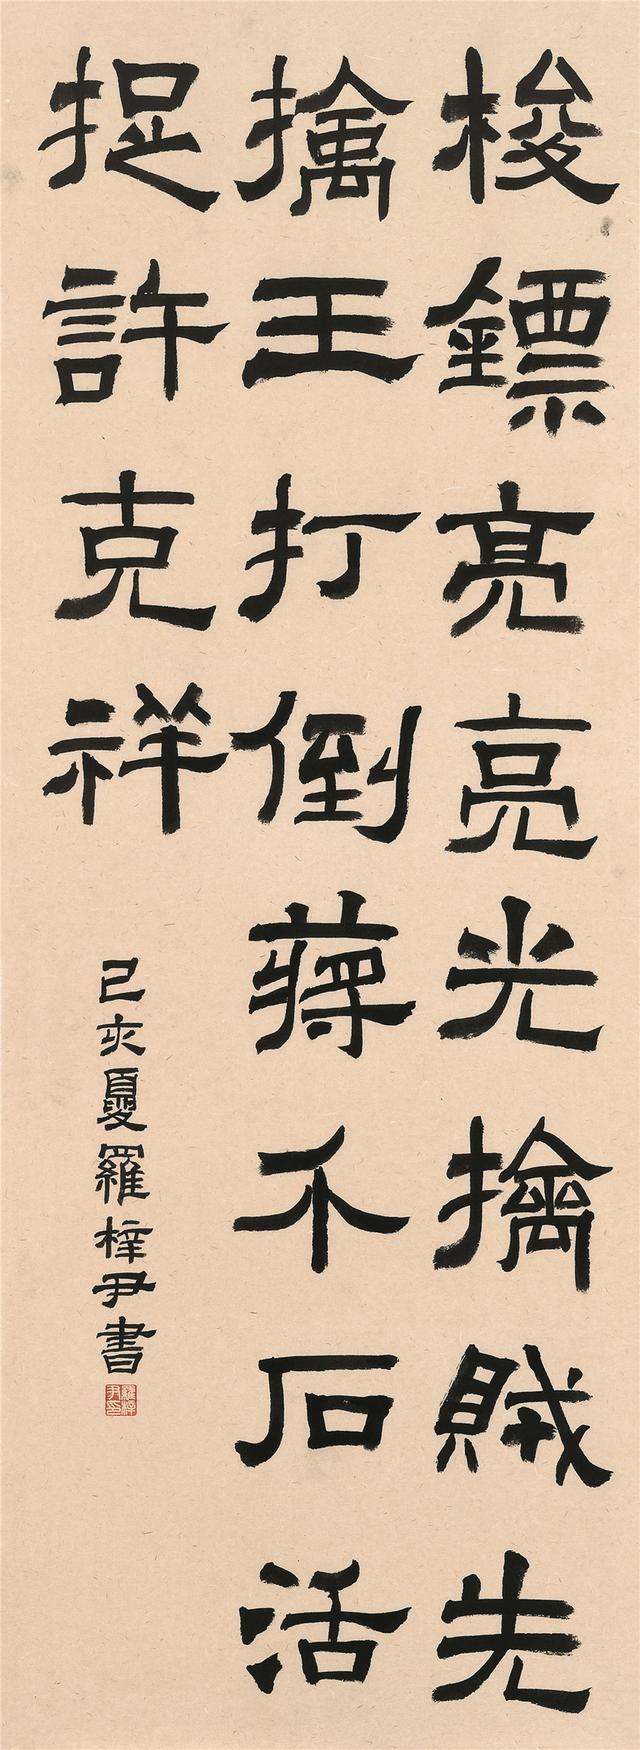 梭鏢亮亮光擒賊先
擒王打倒蔣介石活
捉許克祥
己亥夏羅梓尹書
羅梓尹印